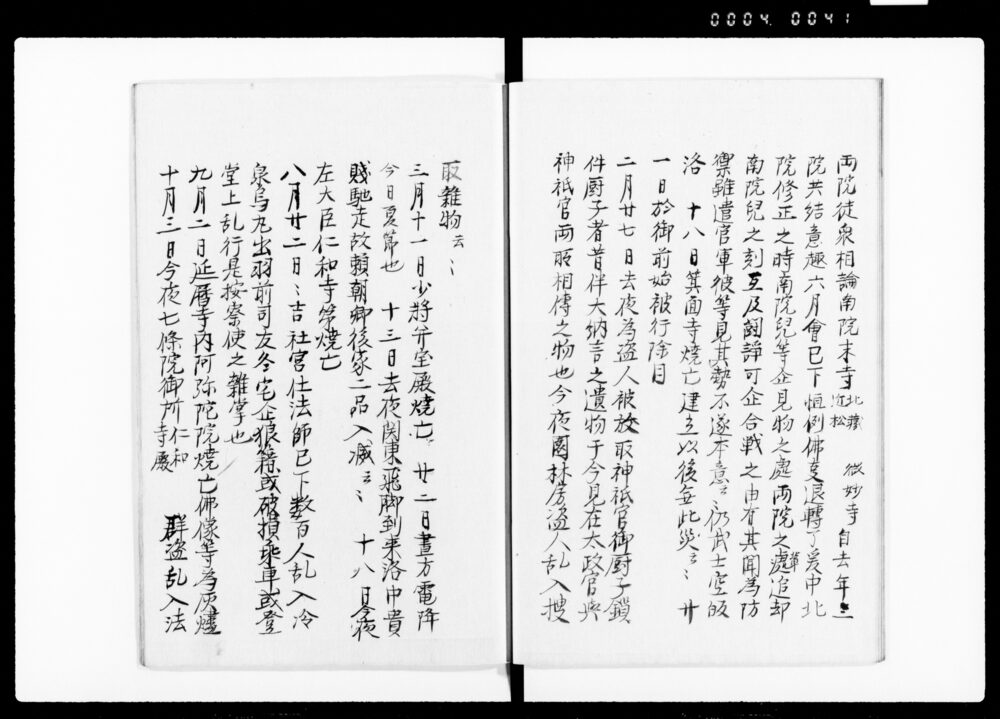 0004.0041
両院徒衆相論南院本寺北藏近松 微妙寺自去年三
院共結意趣六月會已下恒例佛事退轉了爰中北
院修正之時南院兒等企見物之處両院之輩追却
南院兒之刻互及闘諍可企合戦之由有其聞為防
禦雖遣官軍彼等見其勢不遂本意云々仍武士空皈
洛 十八日箕面寺焼亡建立以後無此災云々 廿
一日於御前始被行除目
二月廿七日去夜為盗人被放取神祇官御厨子鎖
件厨子者昔伴大納言之遺物于今見在太政官与
神祇官両所相傳之物也今夜園林房盗人乱入捜
取雜物云々
三月十一日少将井宝殿焼亡 廿二日晝方電降
今日夏節也 十三日去夜関東飛脚到来洛中貴
賤馳走故頼朝卿後家二品入滅云々 十八日今夜
左大臣仁和寺第焼亡
八月廿二日日吉社宮仕法師已下数百人乱入冷
泉烏丸出羽前司友冬宅企狼藉或破損乘車或登
堂上乱行是按察使之雜掌也
九月二日延暦寺内阿弥陀院焼亡佛像等為灰燼
十月三日今夜七條院御所仁和寺殿 群盗乱入法